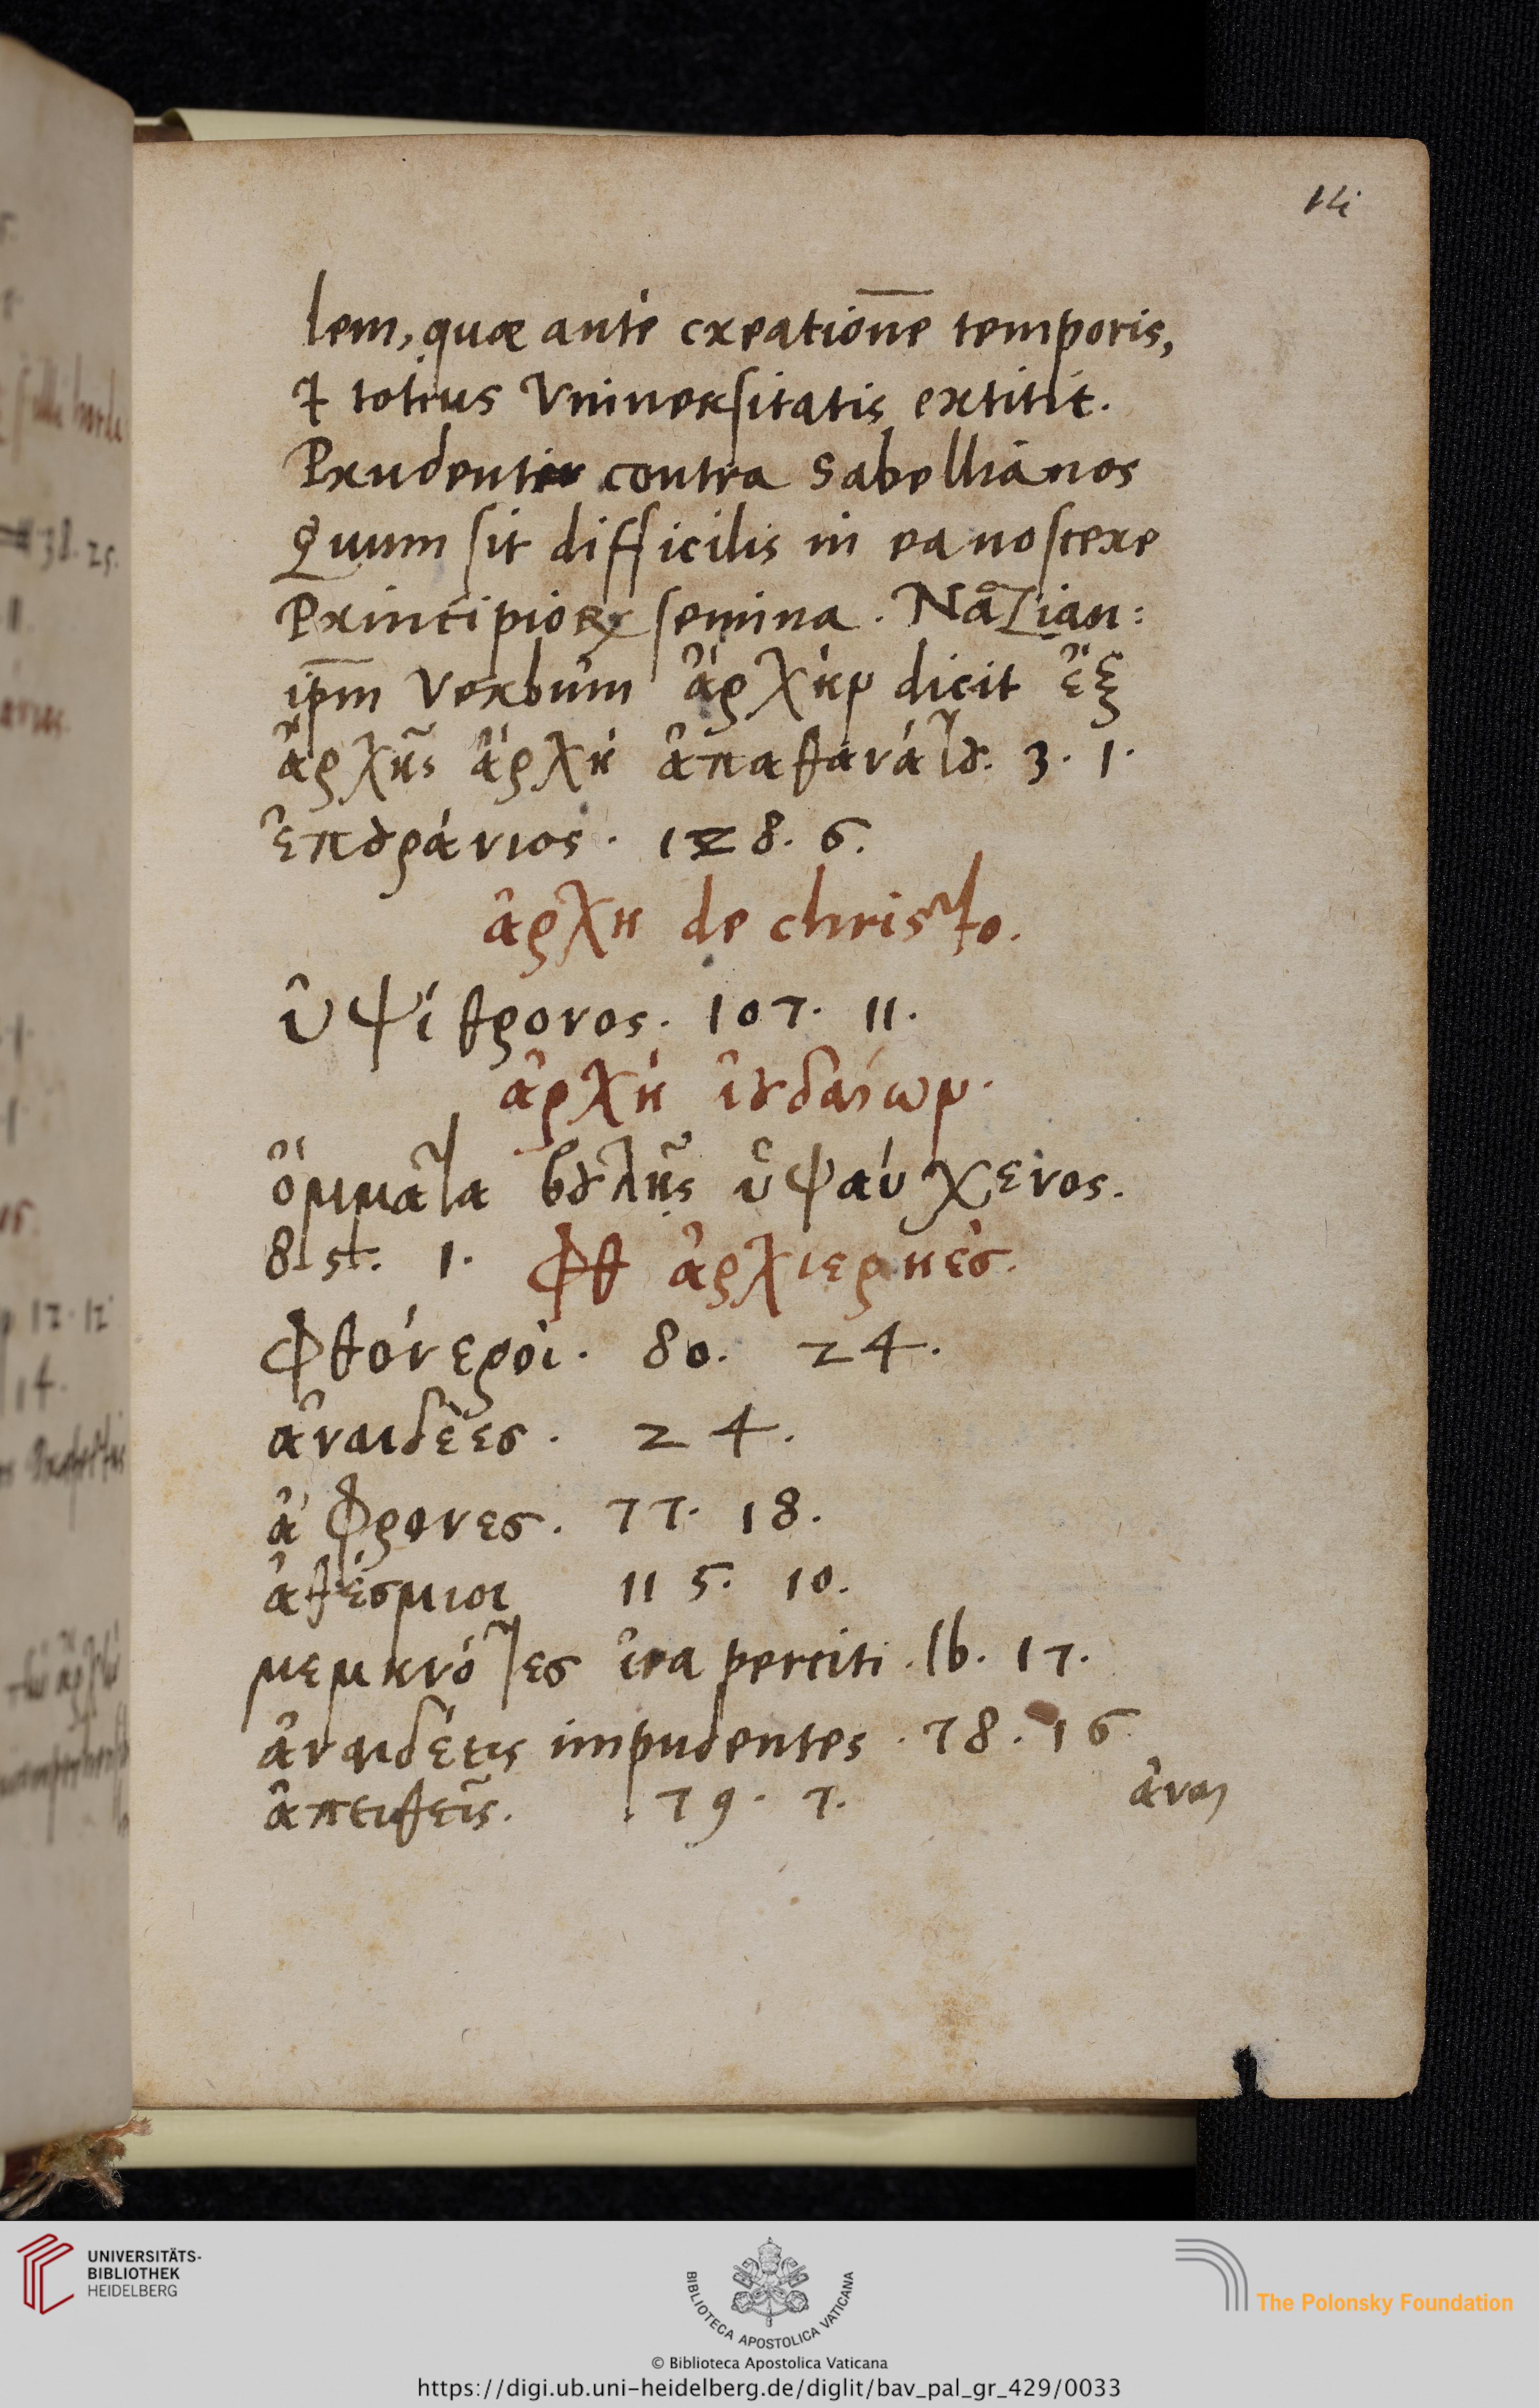 14
lem, quæ ante creationē temporis,
& totius Vniversitatis extitit.
Prudenter contra Sabellianos
Quum sit difficilis in ea noscere
Principioꝝ semina. Nazian:
ip̄m Verbum ἄρχὴν dicit ἐξ
ἀρχῆς ἀρχὴ ἀπαθανάτȣ. 3. 1.
ἐπȣράνιος. 128. 6.
ἀρχη de christo.
ὑψίθρονος. 107. 11.
ἀρχὴ ἰȣδαίων.
ὄμματα βȣλῆς ὑψαύχενος.
8 st. 1. Φθ ἀρχιερηές.
Φθόνεροι. 80. 24.
ἀναιδέες. 24.
ἄφρονες. 77. 18.
ἀθέσμιοι 115. 10.
μεμηνότες ira perciti. Ib. 17.
ἀναιδέεις impudentes. 78. 16.
ἀπειθεῖς. 79. 7.
ἀναι
UNIVERSITÄTS-
BIBLIOTHEK
HEIDELBERG
BIBLIOTECA APOSTOLICA VATICANA
The Polonsky Foundation
© Biblioteca Apostolica Vaticana
https://digi.ub.uni-heidelberg.de/diglit/bav_pal_gr_429/0033